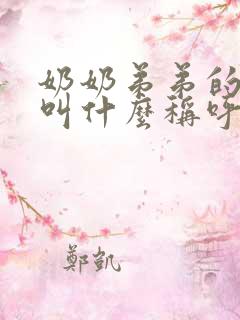 奶奶弟弟的
叫什麼稱呼
鄭凱